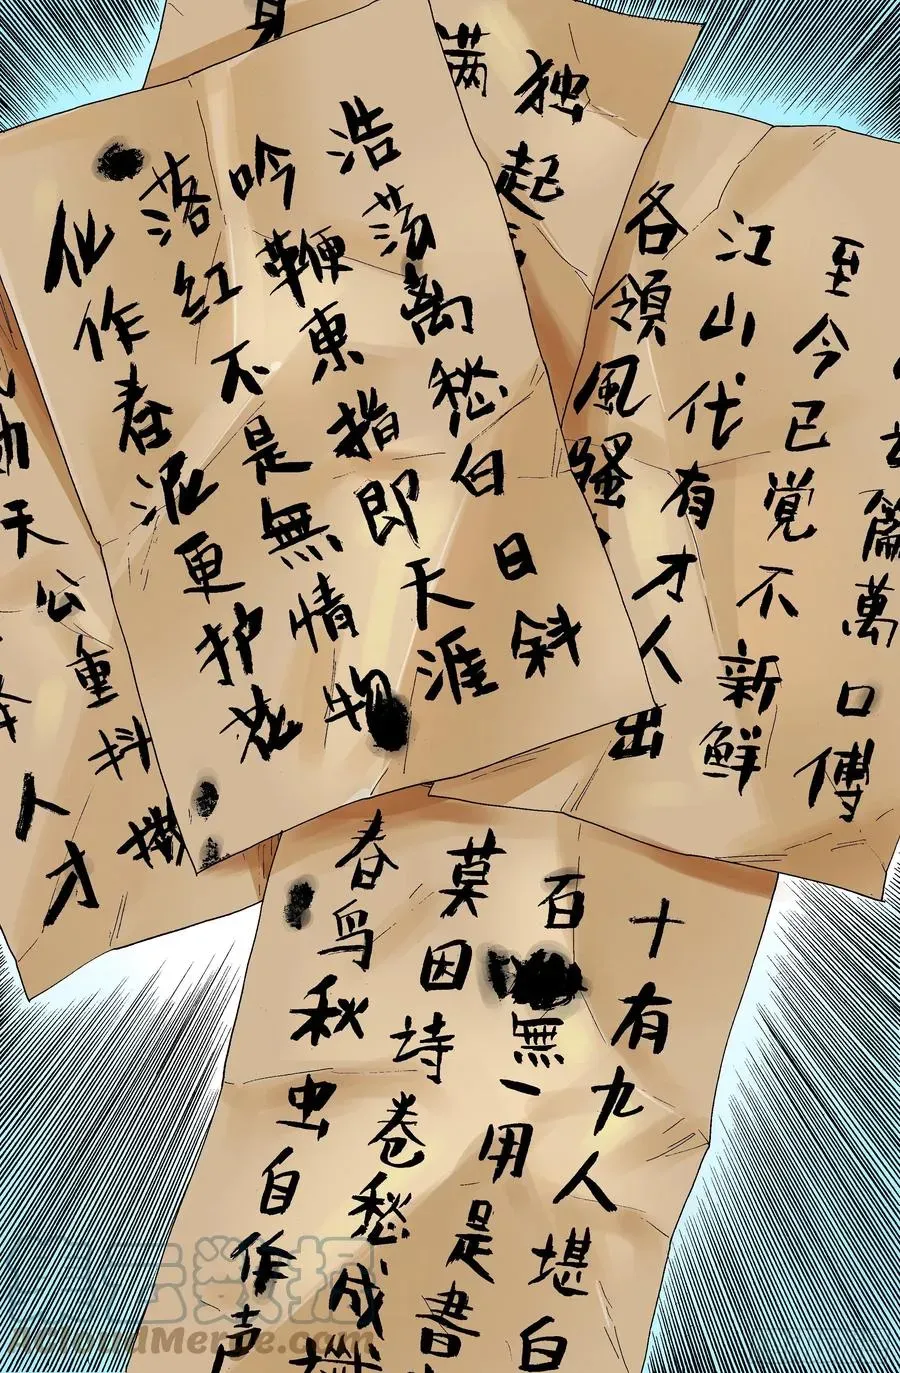 身
满
独起
浩荡离愁白日斜
吟鞭東指即天涯
落红不是無情物
化作春泥更护花
篇萬口傅
至今已觉不新鲜
江山代有才人出
各領風骚
天公重抖擞
人才
十有九人堪白
百無一用是書
莫因诗卷愁成
春鸟秋虫自作声
ACloudMerge.com